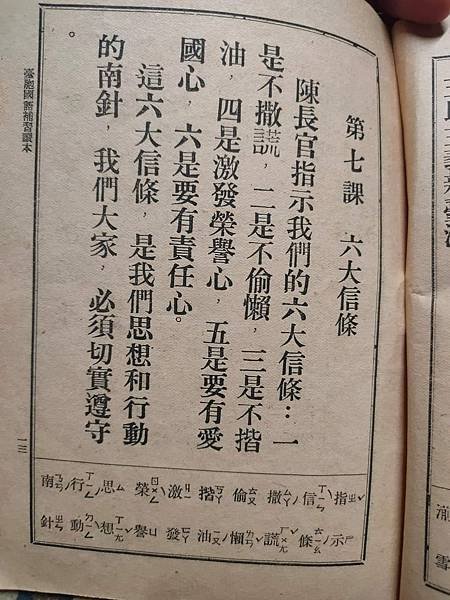 第七課　六大信條
陳長官指示我們的六大信條：一
是不撒謊，二是不偷懶，三是不揩
油，四是激發榮譽心，五是要有愛
國心，六是要有責任心。
這六大信條，是我們思想和行動
的南針，我們大家，必須切實遵守
臺胞國語補習課本
一三
指ㄓˇ示ㄕˋ
信ㄒㄧㄣˋ條ㄊㄧㄠˊ
撒ㄙㄚ謊ㄏㄨㄤˇ
偷ㄊㄡ懶ㄌㄢˇ
揩ㄎㄞ油ㄧㄡˊ
激ㄐㄧ發ㄈㄚ
榮ㄖㄨㄥˊ譽ㄩˋ
思ㄙ想ㄒㄧㄤˇ
行ㄒㄧㄥˊ動ㄉㄨㄥˋ
南ㄋㄢˊ針ㄓㄣ